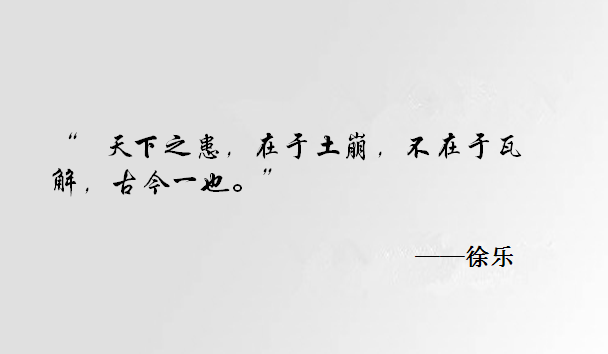 “ 天下之患，在于土崩，不在于瓦
解，古今一也。”
——徐乐